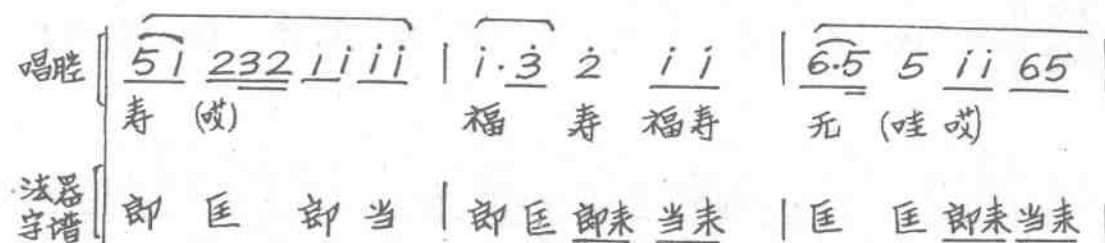 唱腔 5i 232 1i ii | i·3̇ 2̇ i i | 6·5 5 ii 65
寿 (哎) 福 寿 福寿 无 (哇 哎)
法器字谱 郎 匡 郎 当 | 郎 匡 郎来 当来 | 匡 匡 郎来 当来 |